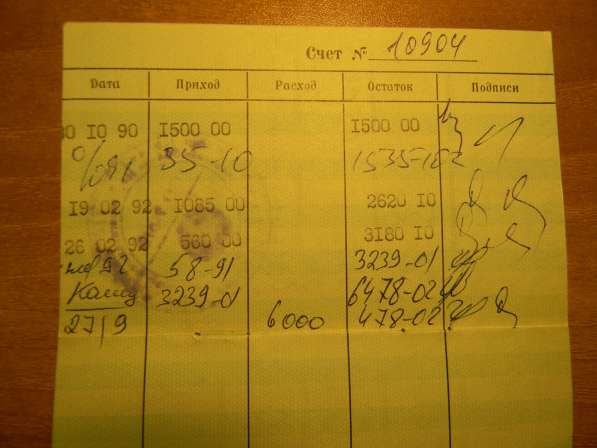 Счет № 10904
Дата Приход Расход Остаток Подписи
30 10 90 1500 00 1500 00
35-10 1535-10
19 02 92 1085 00 2620 10
26 02 92 560 00 3180 10
92 58-91 3239-01
3239-01 6478-02
27/9 6000 478-02